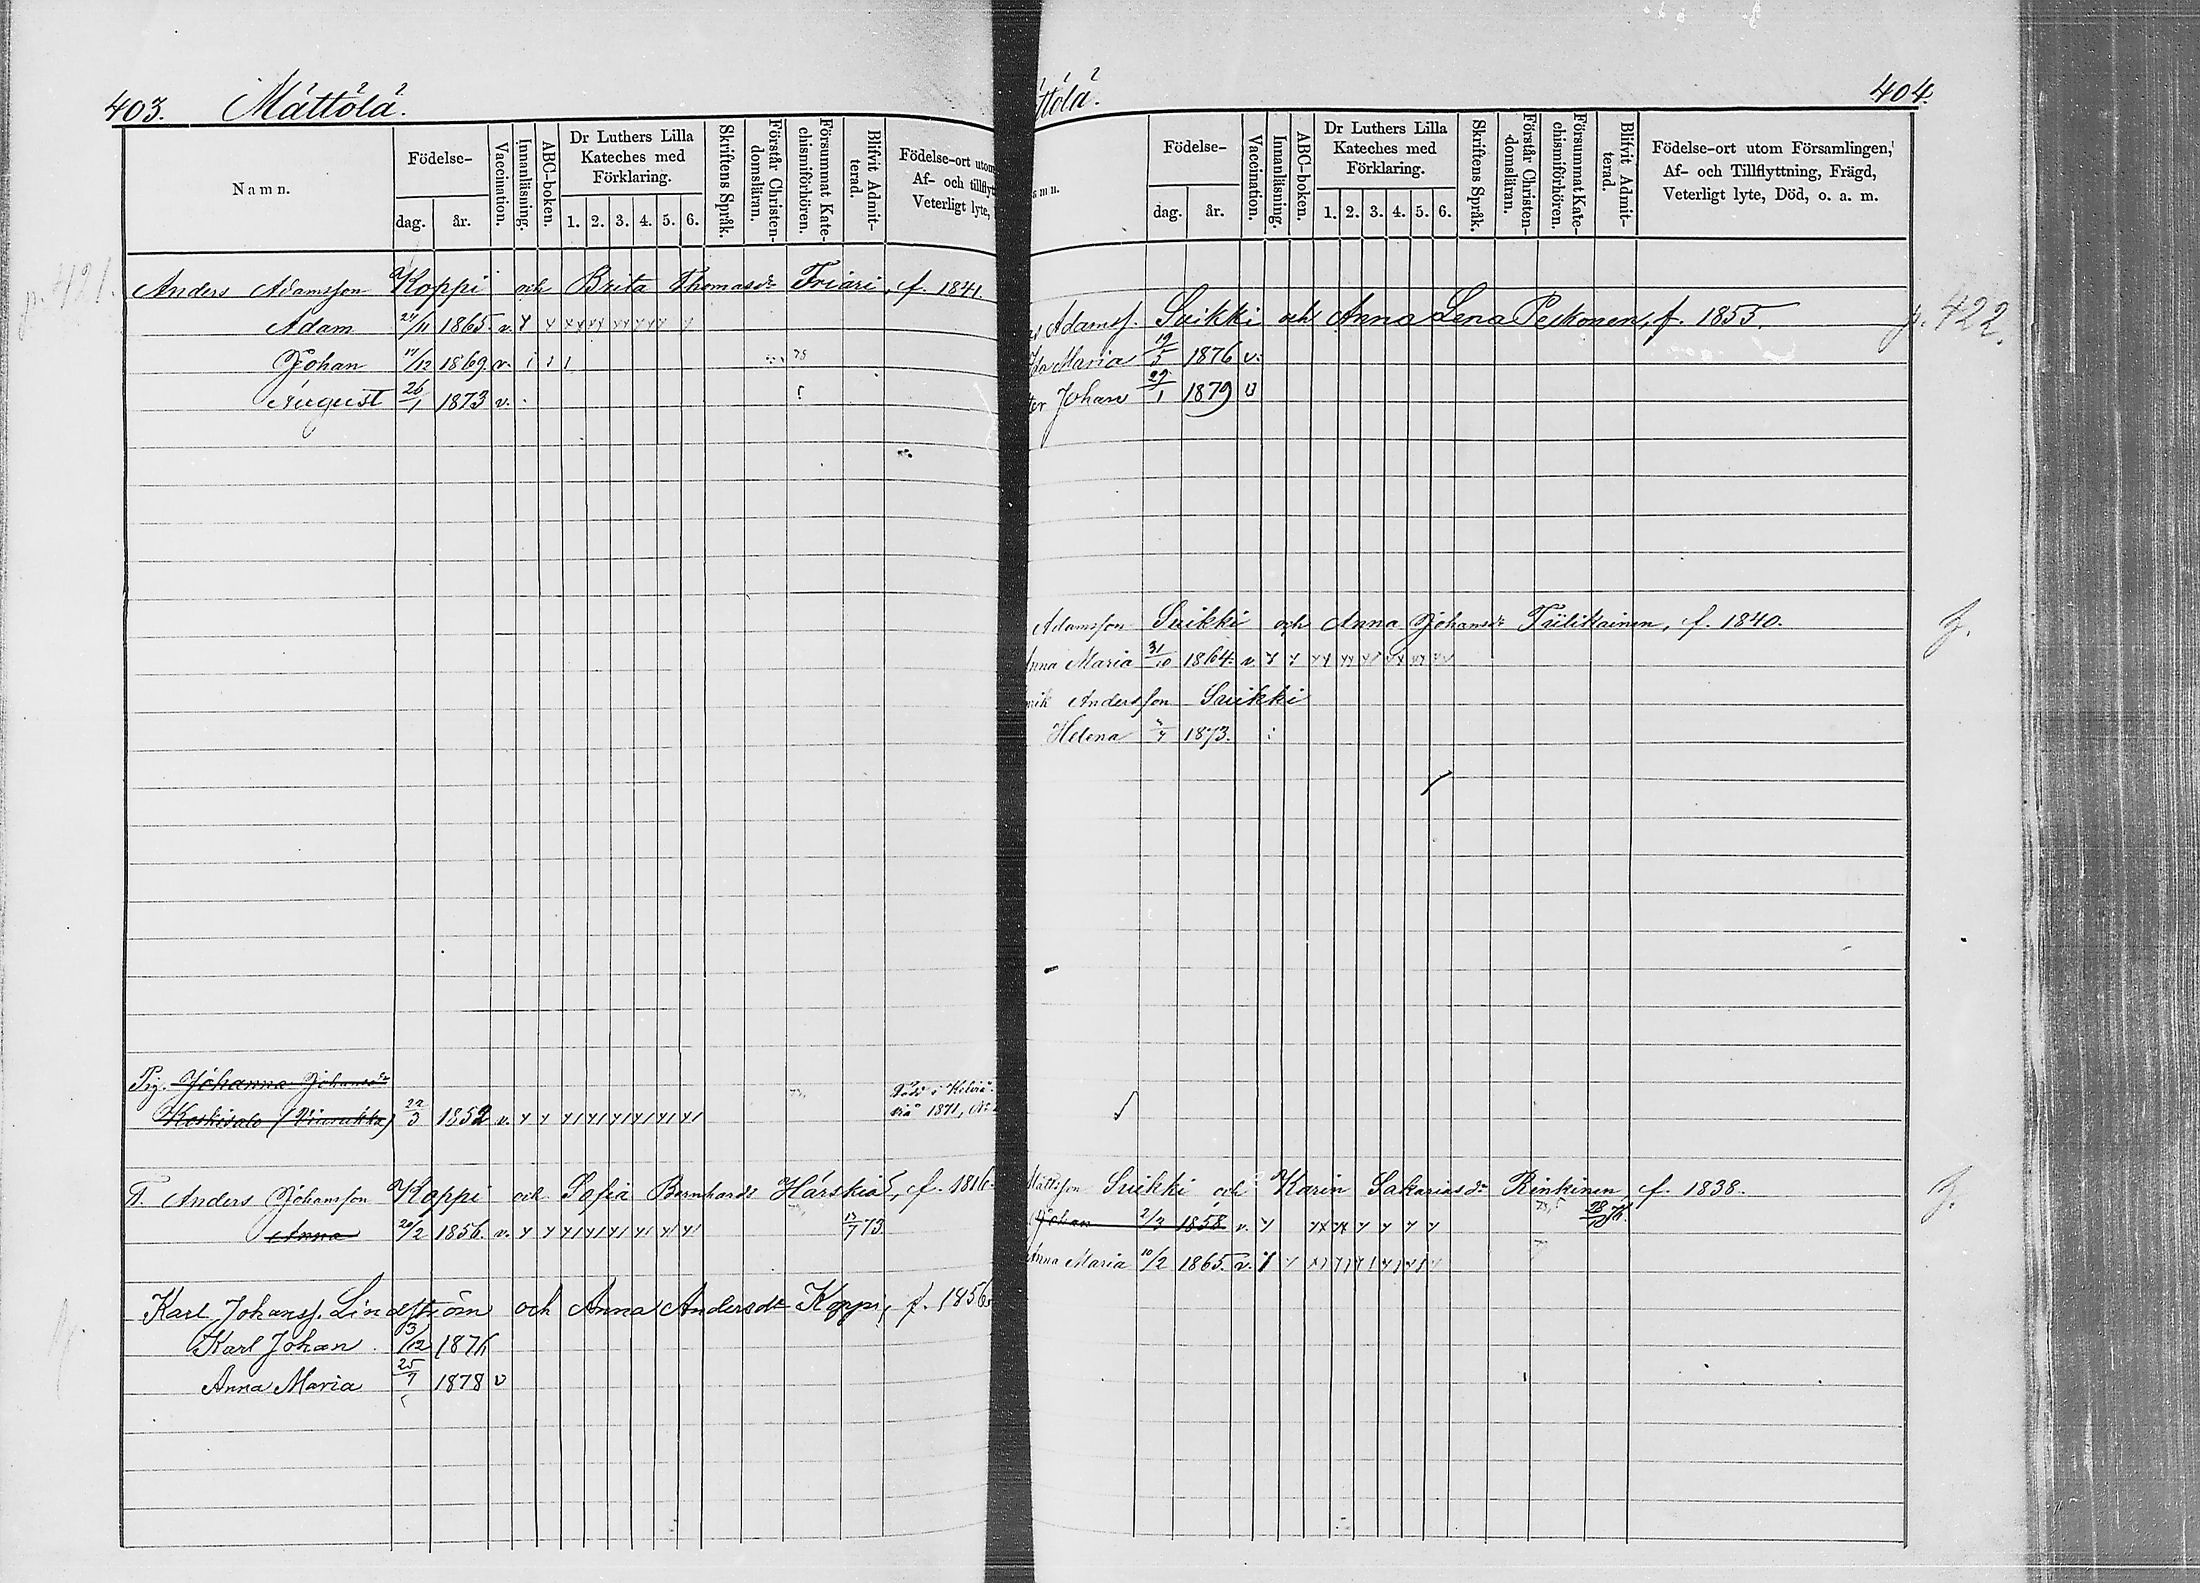 403. Mättölä.
Namn.
Födelse-
dag. år.
Vaccination.
Innanläsning.
ABC-boken.
Dr Luthers Lilla
Kateches med
Förklaring.
1. 2. 3. 4. 5. 6.
Skriftens Språk.
Förstår Christen-
domsläran.
Försummat Kate-
chismiförhören.
Blifvit Admit-
terad.
Födelse-ort utom
Af- och tillflyt
Veterligt lyte,
p. 421.
Anders Adamsson Koppi och Brita Thomasdr Friari, f. 1841.
Adam 21/11 1865. v.
Johan 1869. v.
August 26/1 1873 v.
Pig. Johanna Johansdr
Koskisalo 22/3 1852 v.
1871,
T. Anders Johansson Koppi och Sofia Bernhardr Härskiä, f. 1816.
Anna 20/2 1856. v. 73.
Karl Johanss. Lindström och Anna Andersdr Koppi, f. 1856
Karl Johan 3/12 1876
Anna Maria 25/7 1878 v
ttölä. 404.
Födelse-
dag. år.
Vaccination.
Innanläsning.
ABC-boken.
Dr Luthers Lilla
Kateches med
Förklaring.
1. 2. 3. 4. 5. 6.
Skriftens Språk.
Förstår Christen-
domsläran.
Försummat Kate-
chismiförhören.
Blifvit Admit-
terad.
Födelse-ort utom Församlingen,
Af- och Tillflyttning, Frägd,
Veterligt lyte, Död, o. a. m.
Adamss. Suikki och Anna Lena Peskonen, f. 1855. p. 422.
Maria 19/5 1876 v.
Johan 29/1 1879 v
Adamsson Suikki och Anna Johansdr Tülikainen, f. 1840.
nna Maria 31/10 1864. v.
rik Andersson Suikki
Helena 1873.
Mattsson Suikki och Karin Sakariasdr Rinkinen, f. 1838.
Johan 2/3 1858. v.
Anna Maria 10/2 1865. v.